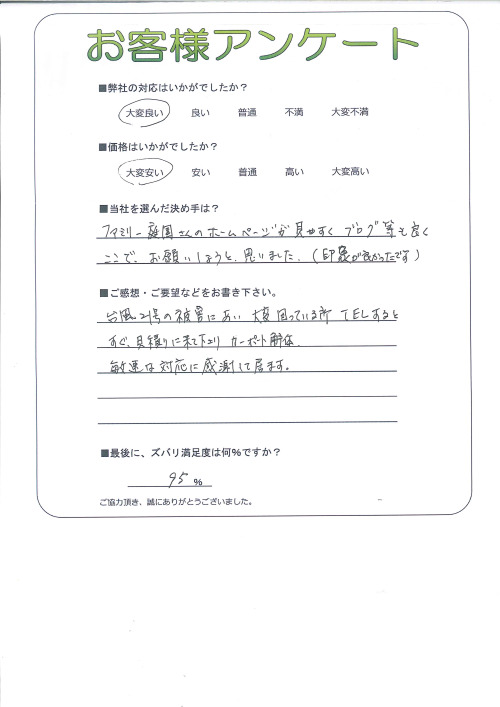 お客様アンケート
■弊社の対応はいかがでしたか？
大変良い 良い 普通 不満 大変不満
■価格はいかがでしたか？
大変安い 安い 普通 高い 大変高い
■当社を選んだ決め手は？
ファミリー庭園さんのホームページが見やすく ブログ等も良く
ここで、お願いしようと思いました。（印象が良かったです）
■ご感想・ご要望などをお書き下さい。
台風21号の被害にあい 大変困っている所 TELすると
すぐ、見積りに来て下さり カーポート解体
敏速な対応に感謝して居ます。
■最後に、ズバリ満足度は何％ですか？
95 %
ご協力頂き、誠にありがとうございました。